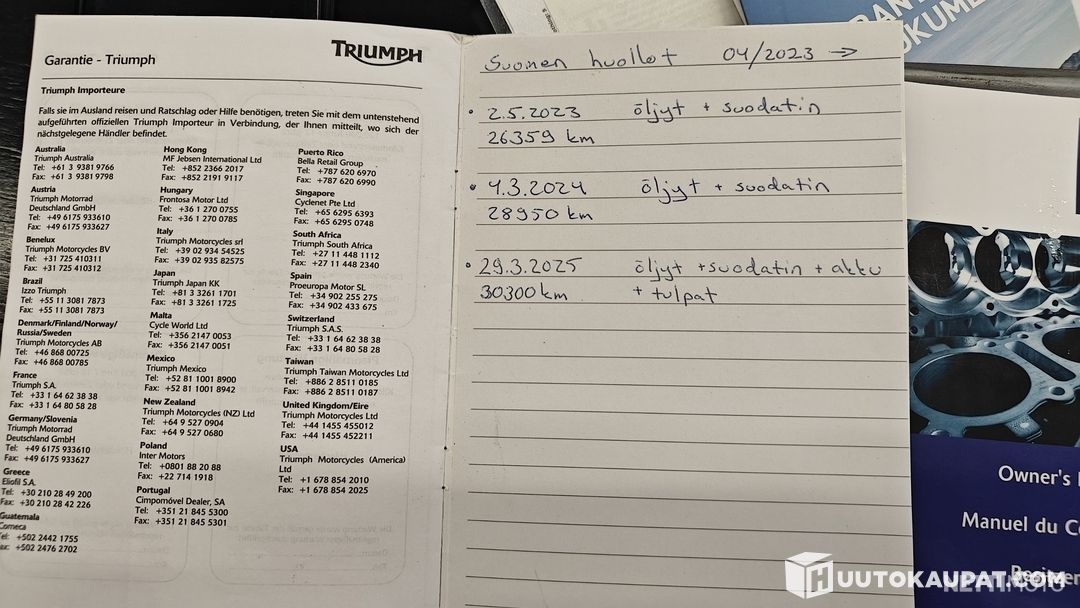 Garantie - Triumph
TRIUMPH
Triumph Importeure
Falls sie im Ausland reisen und Ratschlag oder Hilfe benötigen, treten Sie mit dem untenstehend
aufgeführten offiziellen Triumph Importeur in Verbindung, der Ihnen mitteilt, wo sich der
nächstgelegene Händler befindet.
Australia
Triumph Australia
Tel: +61 3 9381 9766
Fax: +61 3 9381 9798
Austria
Triumph Motorrad
Deutschland GmbH
Tel: +49 6175 933610
Fax: +49 6175 933627
Benelux
Triumph Motorcycles BV
Tel: +31 725 410311
Fax: +31 725 410312
Brazil
Izzo Triumph
Tel: +55 11 3081 7873
Fax: +55 11 3081 7873
Denmark/Finland/Norway/
Russia/Sweden
Triumph Motorcycles AB
Tel: +46 868 00725
Fax: +46 868 00785
France
Triumph S.A.
Tel: +33 1 64 62 38 38
Fax: +33 1 64 80 58 28
Germany/Slovenia
Triumph Motorrad
Deutschland GmbH
Tel: +49 6175 933610
Fax: +49 6175 933627
Greece
Eliofil S.A.
Tel: +30 210 28 49 200
Fax: +30 210 28 42 226
Guatemala
Comeca
Tel: +502 2442 1755
Fax: +502 2476 2702
Hong Kong
MF Jebsen International Ltd
Tel: +852 2366 2017
Fax: +852 2191 9117
Hungary
Frontosa Motor Ltd
Tel: +36 1 270 0755
Fax: +36 1 270 0785
Italy
Triumph Motorcycles srl
Tel: +39 02 934 54525
Fax: +39 02 935 82575
Japan
Triumph Japan KK
Tel: +81 3 3261 1701
Fax: +81 3 3261 1725
Malta
Cycle World Ltd
Tel: +356 2147 0053
Fax: +356 2147 0051
Mexico
Triumph Mexico
Tel: +52 81 1001 8900
Fax: +52 81 1001 8942
New Zealand
Triumph Motorcycles (NZ) Ltd
Tel: +64 9 527 0904
Fax: +64 9 527 0680
Poland
Inter Motors
Tel: +0801 88 20 88
Fax: +22 714 1918
Portugal
Cimpomóvel Dealer, SA
Tel: +351 21 845 5300
Fax: +351 21 845 5301
Puerto Rico
Bella Retail Group
Tel: +787 620 6970
Fax: +787 620 6990
Singapore
Cyclenet Pte Ltd
Tel: +65 6295 6393
Fax: +65 6295 0748
South Africa
Triumph South Africa
Tel: +27 11 448 1112
Fax: +27 11 448 2340
Spain
Proeuropa Motor SL
Tel: +34 902 255 275
Fax: +34 902 433 675
Switzerland
Triumph S.A.S.
Tel: +33 1 64 62 38 38
Fax: +33 1 64 80 58 28
Taiwan
Triumph Taiwan Motorcycles Ltd
Tel: +886 2 8511 0185
Fax: +886 2 8511 0187
United Kingdom/Eire
Triumph Motorcycles Ltd
Tel: +44 1455 455012
Fax: +44 1455 452211
USA
Triumph Motorcycles (America)
Ltd
Tel: +1 678 854 2010
Fax: +1 678 854 2025
Suomen huollot 04/2023 →
• 2.5.2023 öljyt + suodatin
26359 km
• 4.3.2024 öljyt + suodatin
28950 km
• 29.3.2025 öljyt + suodatin + akku
30300 km + tulpat
Owner's
Manuel du
HUUTOKAUPAT.COM
NETTIMOTO